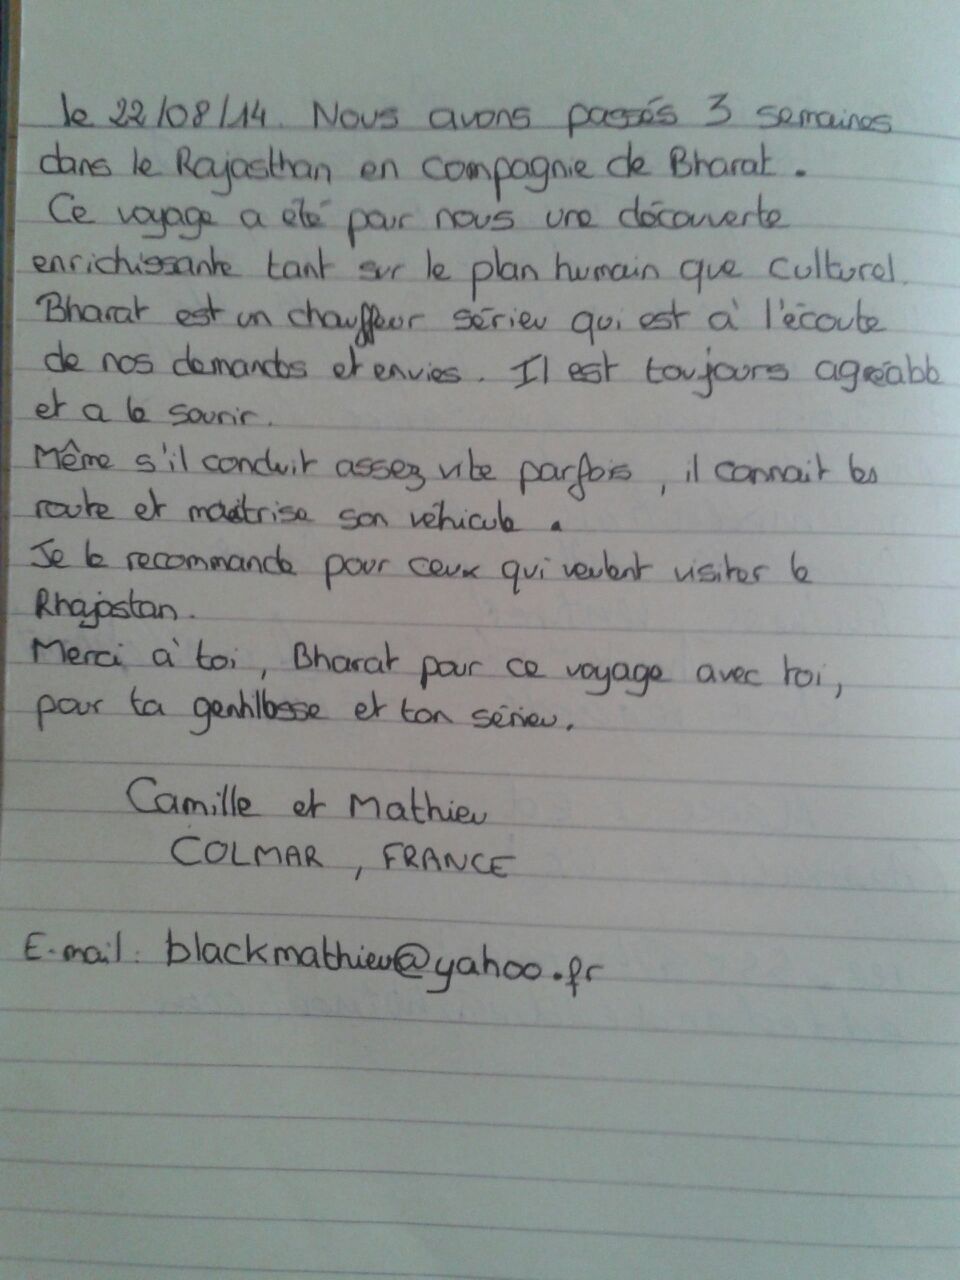 le 22/08/14. Nous avons passés 3 semaines
dans le Rajasthan en compagnie de Bharat.
Ce voyage a été pour nous une découverte
enrichissante tant sur le plan humain que culturel.
Bharat est un chauffeur sérieu qui est à l'écoute
de nos demandes et envies. Il est toujours agréable
et a le sourir.
Même s'il conduit assez vite parfois, il connait les
route et maîtrise son véhicule.
Je le recommande pour ceux qui veulent visiter le
Rhajastan.
Merci à toi, Bharat pour ce voyage avec toi,
pour ta gentillesse et ton sérieu.
Camille et Mathieu
COLMAR, FRANCE
E-mail: blackmathieu@yahoo.fr